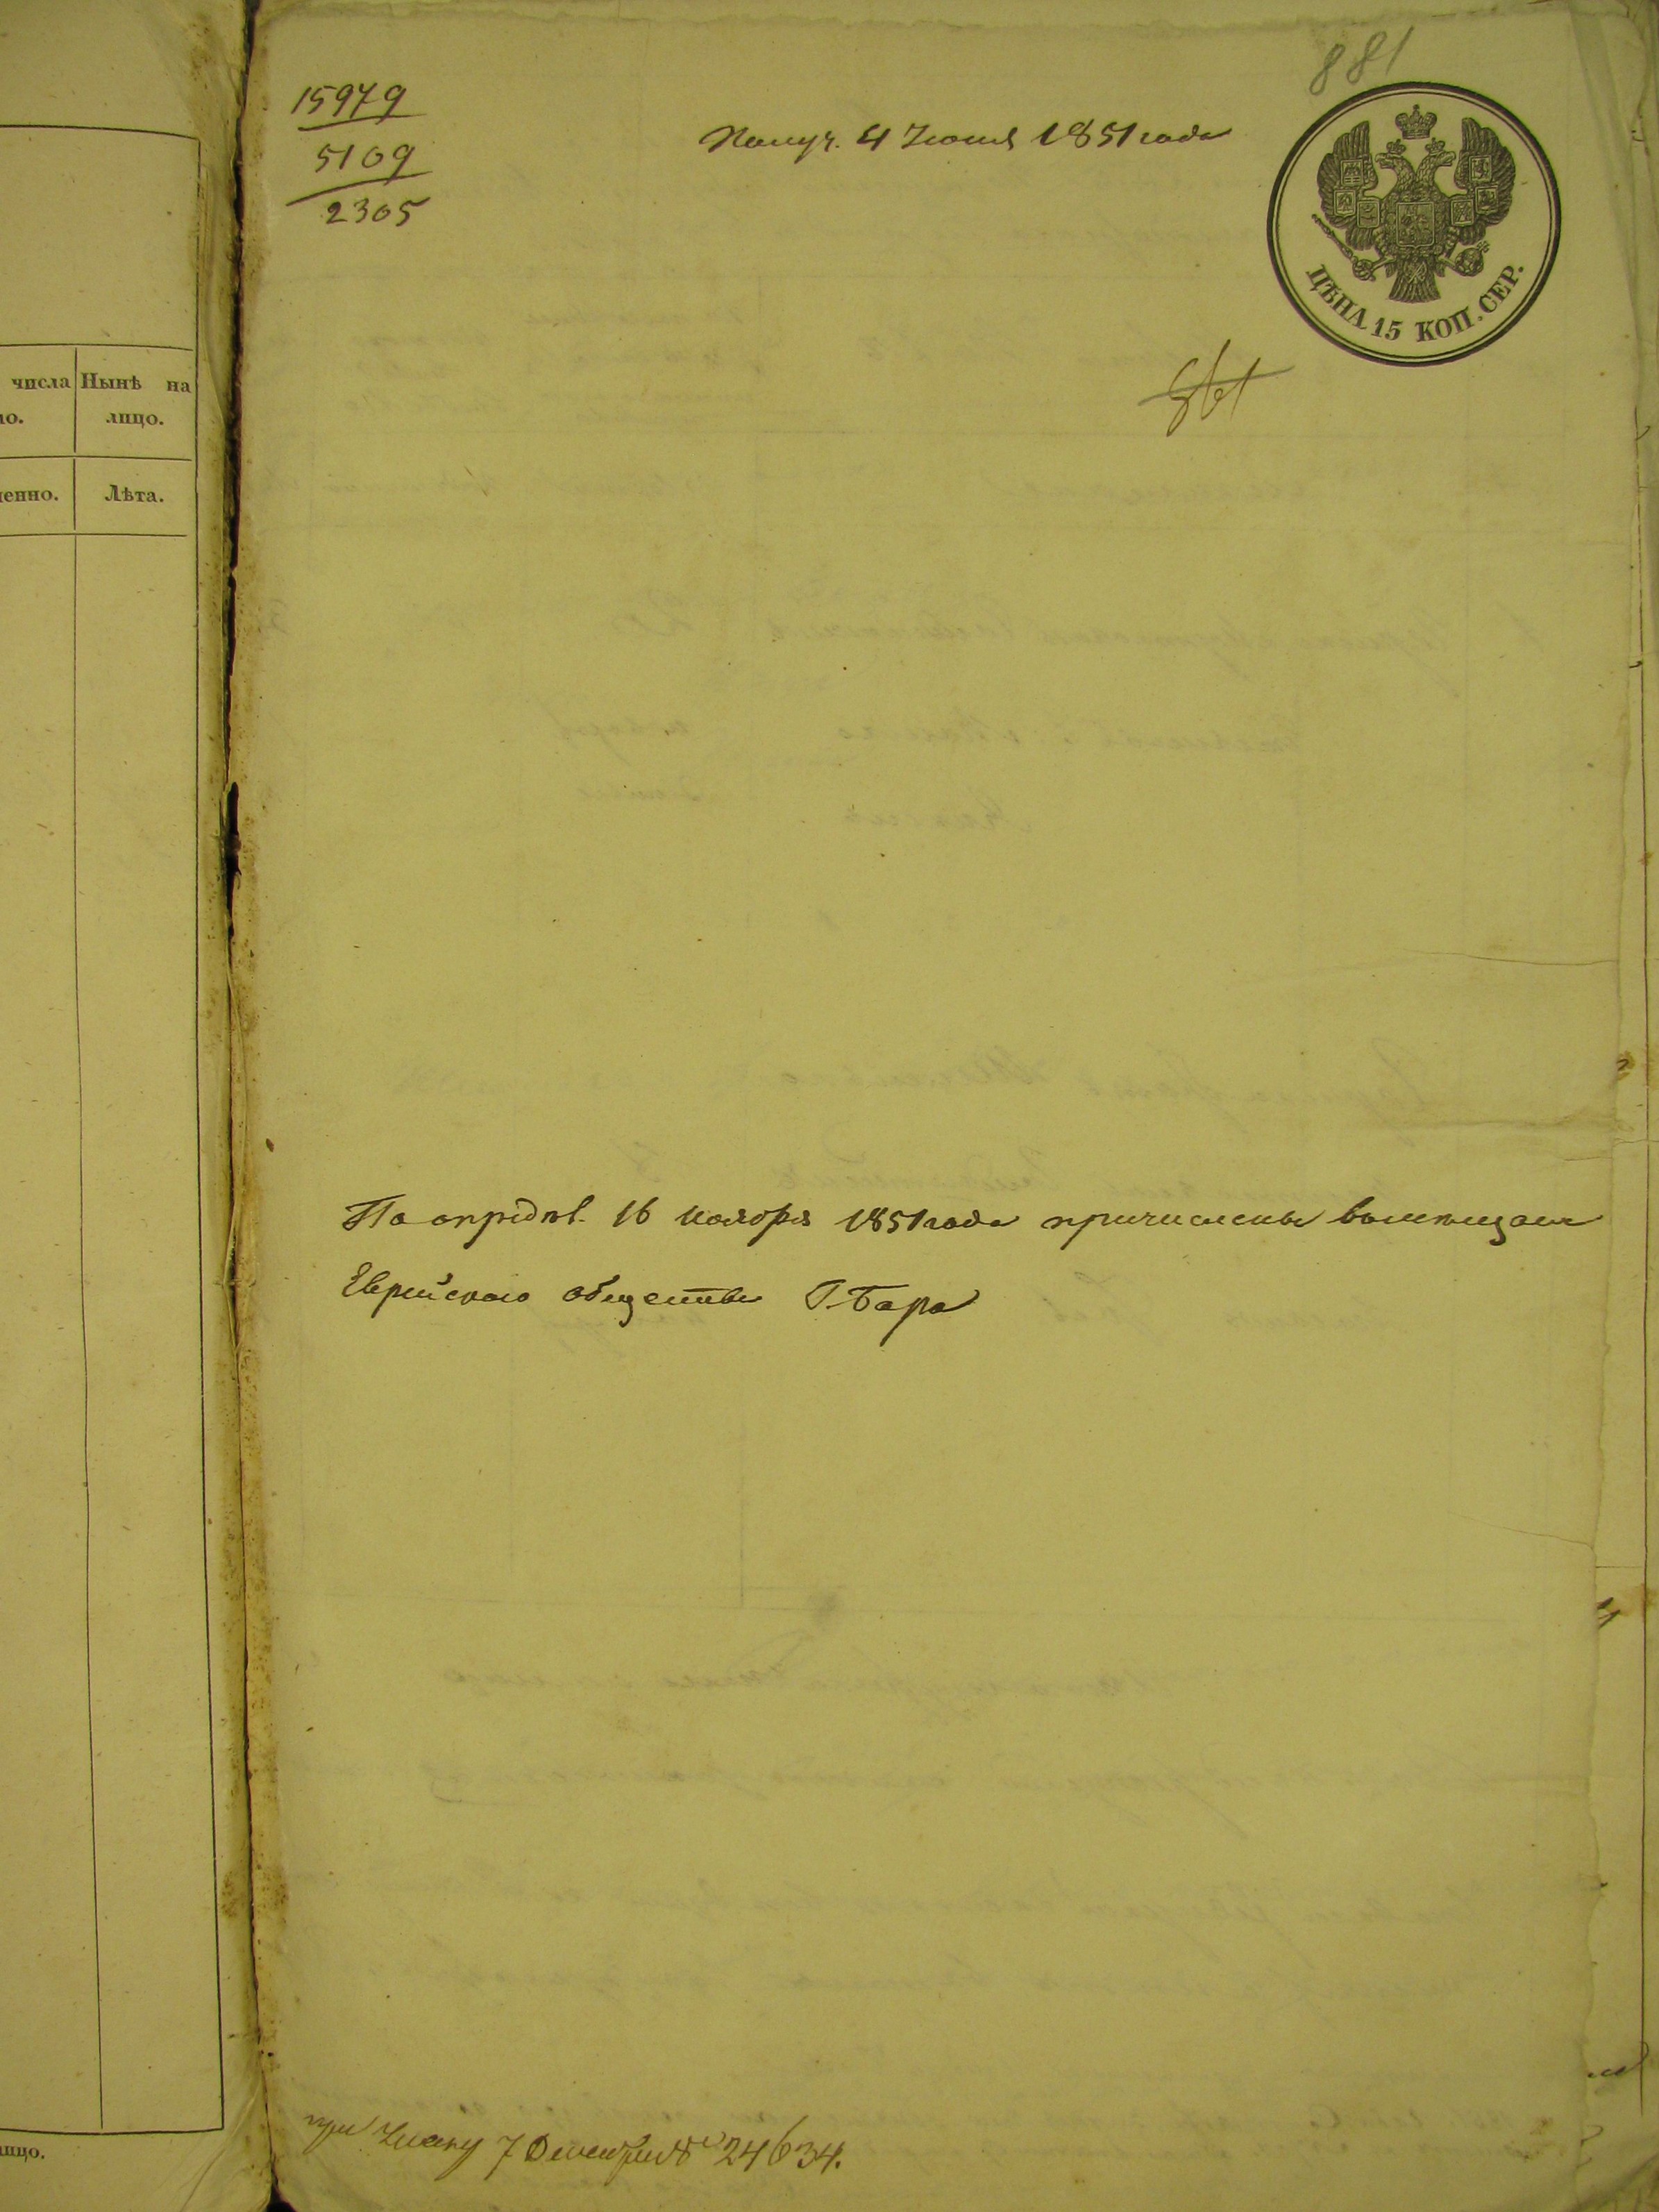 881
15979
5109
2305
Получ. 4 Июня 1851 года
ЦѢНА 15 КОП. СЕР.
числа
Нынѣ на
ло.
лицо.
менно.
Лѣта.
По опредѣл. 16 ноября 1851 года причислены
Еврейскаго общества Г. Бара
лицо.
при Указу 7 Декабря № 24634.